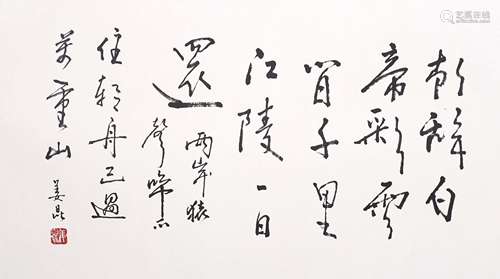 朝辞白
帝彩云
间千里
江陵一日
还两岸猿
声啼不
住轻舟已过
万重山
姜昆
艺狐在线